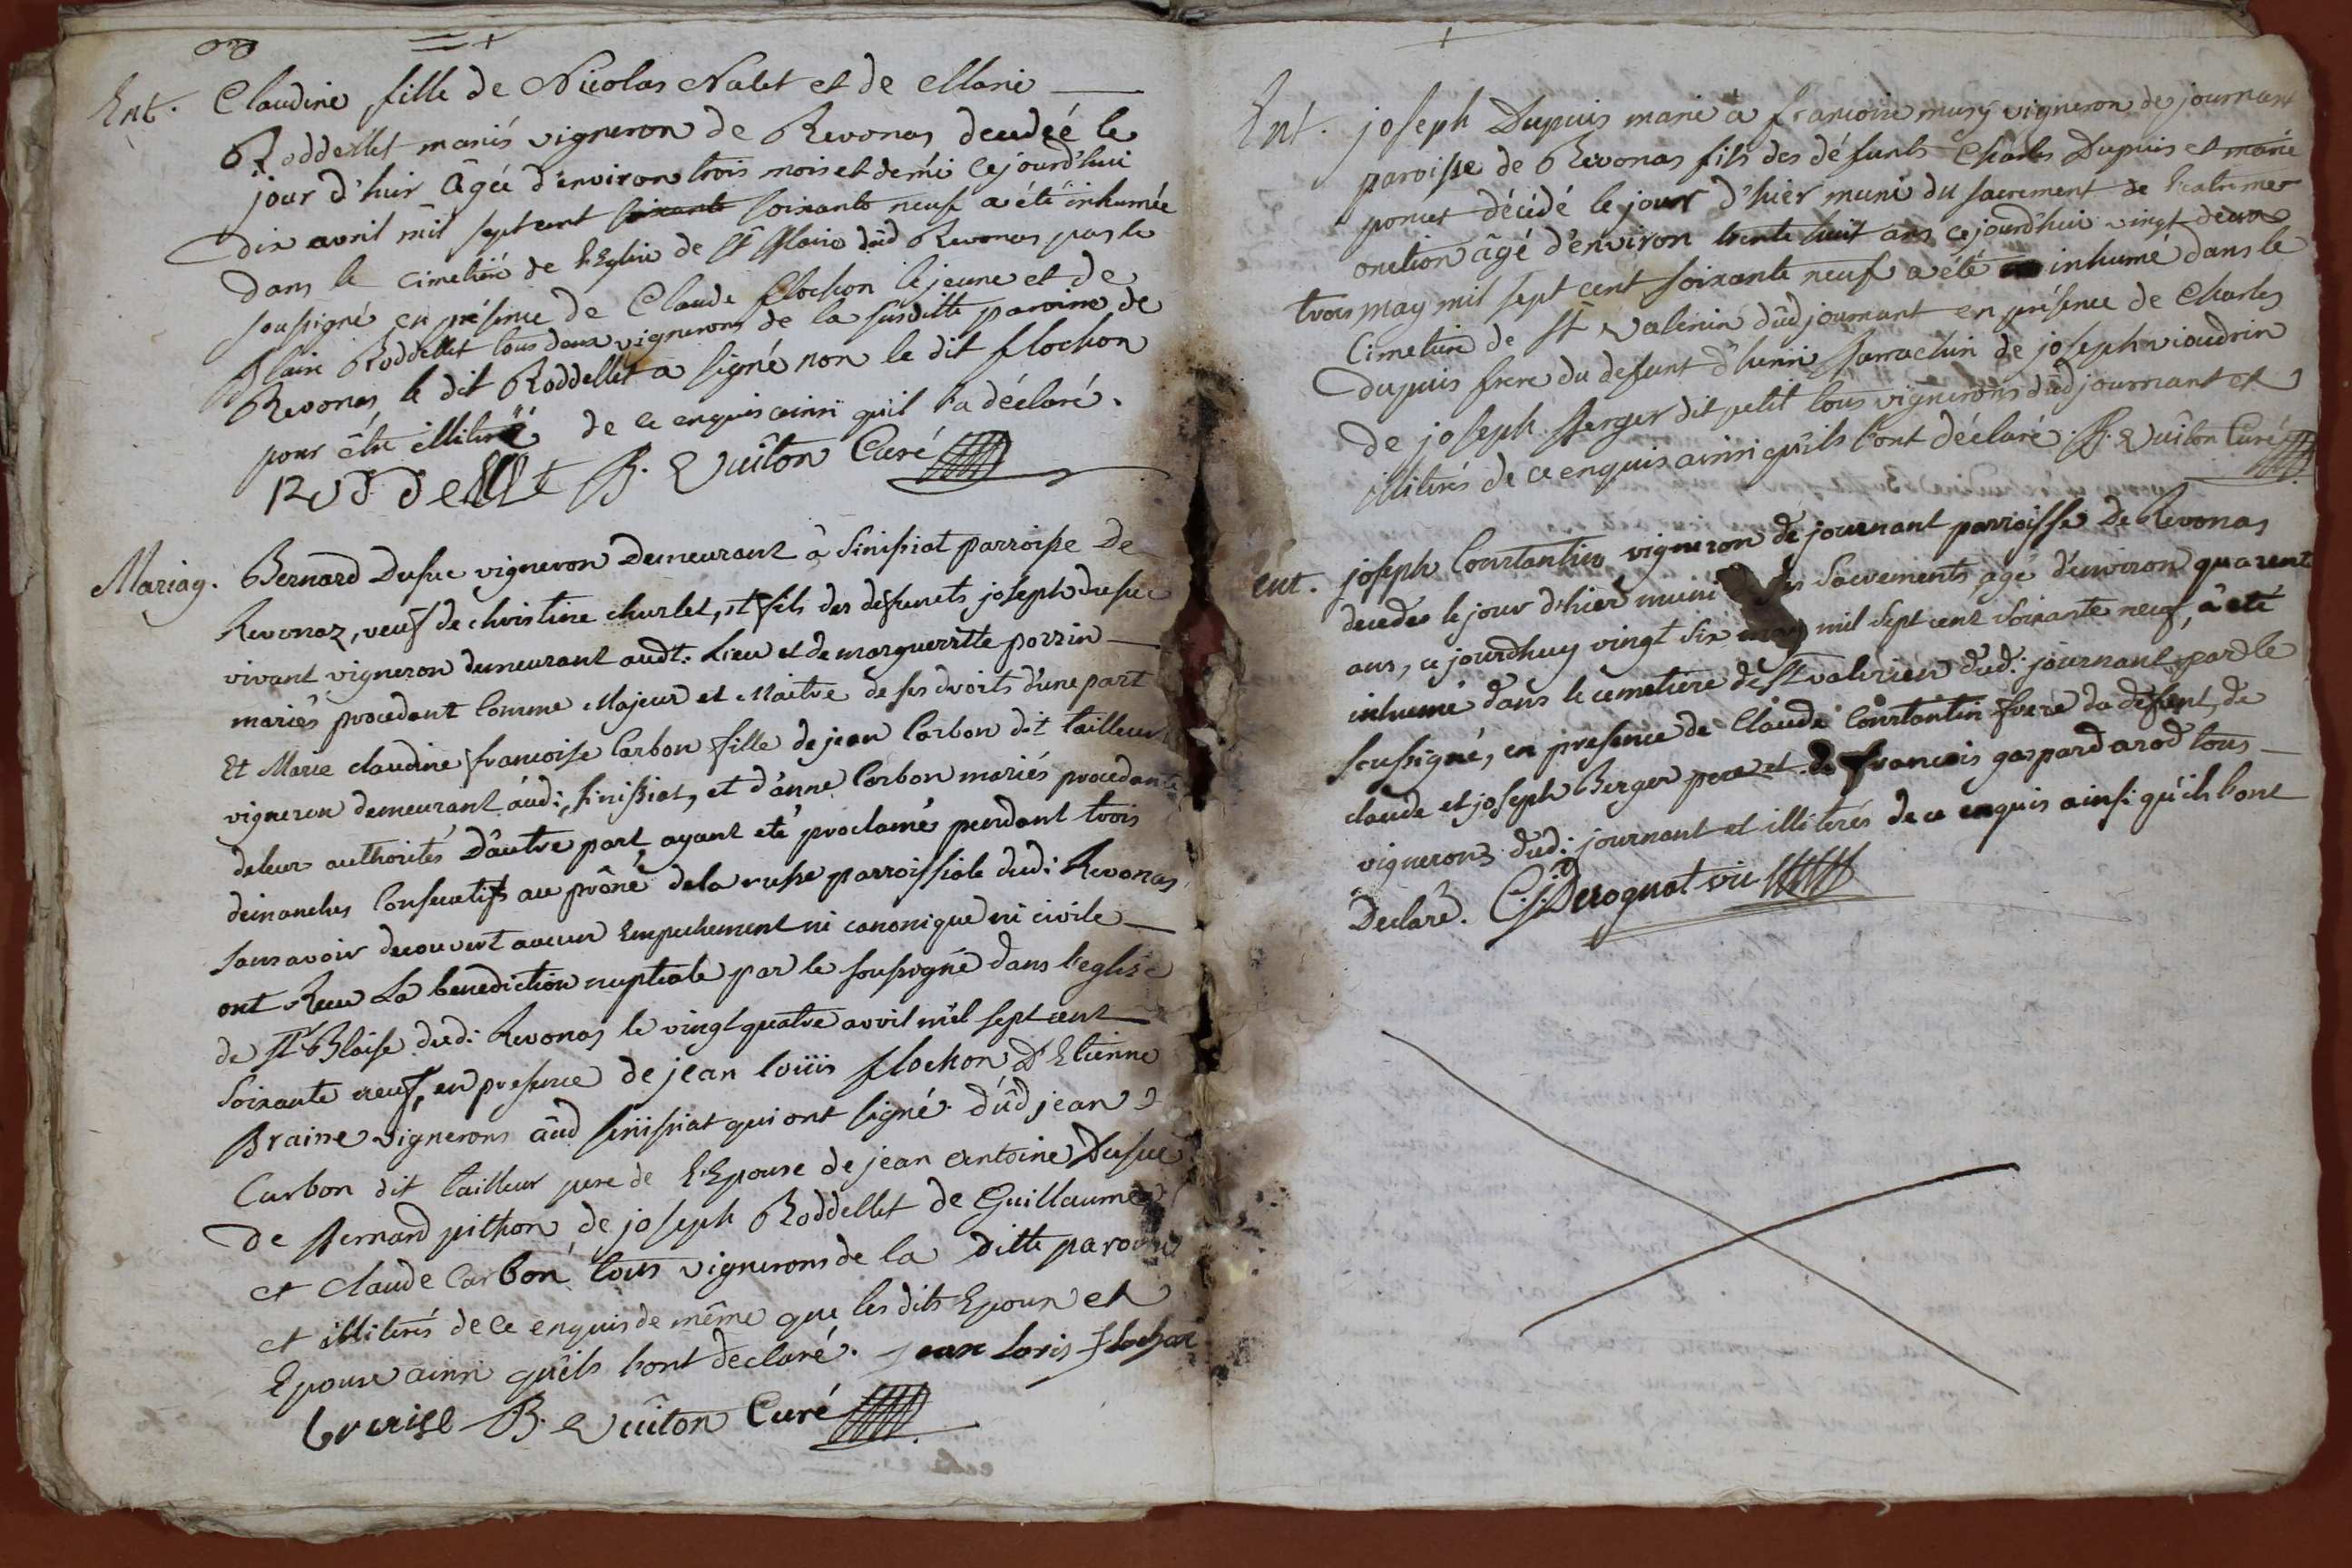 Ent. Claudine fille de Nicolas Nalet et de Marie
Roddellet mariés vigneron de Revonas decedée le
jour d'hier âgée d'environ trois mois et demi cejourd'hui
dix avril mil sept cent soixante soixante neuf a été inhumée
dans le cimetière de l'Eglise de St Blaise dûd Revonas par le
soussigné en présence de Claude flochon le jeune et de
Blaise Roddellet tous deux vignerons de la susditte paroisse de
Revonas le dit Roddellet a signé non le dit flochon
pour être illiteré de ce enquis ainsi qu'il l'a déclaré.
Roddellet B. Vuiton Curé
Mariag. Bernard Dufue vigneron Demeurant à Sinissiat parroisse De
Revonaz, veuf de christine churlet, et fils des défunets joseph dufue
vivant vigneron demeurant audt. Lieu et de marguerritte porrin
mariés procedant Comme Majeur et Maitre de ses droits d'une part
Et Marie claudine francoise Carbon fille de jean Carbon dit tailleur
vigneron demeurant audi, sinissiat, et d'anne Corbon mariés procedante
de leur authorités D'autre part ayant eté proclamés pendant trois
dimanches Consecutifs au prône de la messe parroissiale dudi Revonas
sans avoir decouvert aucun Empechement ni canonique ni civile
ont Receu La benediction nuptiale par le soussigné dans l'eglise
de St Blaise dudi Revonas le vingt quatre avril mil sept cent
Soixante neuf, en presence de jean loüis flochon D'Etienne
Braine vignerons âud sinissiat qui ont signé. dûd jean
Carbon dit tailleur pere de l'Epouse de jean Antoine Dufue
De Bernard pithon de joseph Roddellet de Guillaume
et Claude Carbon tous vignerons de la ditte paroisse
et illiterés de ce enquis de même que les dits Epoux et
Epouse ainsi qu'ils l'ont declaré. jean Loris flochon
B. Vuiton Curé
Ent. joseph Dupuis marié à francoise musy vigneron de journant
paroisse de Revonas fils des défunts Charles Dupuis et marie
poncet décédé le jour d'hier muni du sacrement de l'extreme
onction âgé d'environ trente huit ans cejourd'hui vingt deux
trois may mil sept cent soixante neuf a été inhumé dans le
Cimetiere de St Valerien dûd journant en présence de Charles
dupuis frere du defunt d'henri Sarrachin de joseph viaudrin
de joseph Berger dit petit tous vignerons dûd journant et
illiterés de ce enquis ainsi qu'ils l'ont déclaré. B. Vuiton Curé
ent. joseph Constantin vigneron de journant parroisse De Revonas
decedes le jour d'hier muni Sacrements, agé d'environ quarent
ans, ce jourdhuy vingt six may mil sept cent soixante neuf, à eté
inhumé dans le cemetiere de St valerien dud: journant par le
soussigné, en presence de Claude Constantin frere du défunt, de
claude et joseph Berger pere et de francois gaspard arod tous
vignerons dud: journant et illiterés de ce enquis ainsi qu'ils l'ont
Declaré. C. j. Derognat vic